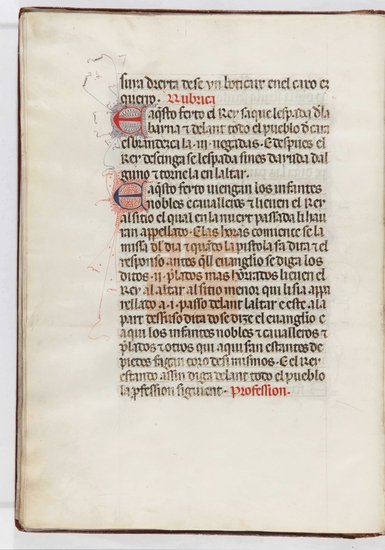 suya drecta de se vn boticar en el cayo er
quero. Rubrica
E aqsto feyto el Rey saque lespada dla
bayna τ delant todo el pueblo d cara
esblandezca la .iii. vegadas. E despues el
Rey descinga se lespada sines dayuda dal
guno τ torne la en laltar.
E aqsto feyto viengan los infantes
nobles τ caualleros τ lieuen el Rey
al sitio el qual en la nueyt passada li hau
ran appellato. E las horas comience se la
missa dl dia τ quando la pistola sia dita τ el
responso antes ql euanglio se diga los
ditos .ii. plados mas hōrados lieuen el
Rey al altar al sitio menor qui li sia appa
rellado a .i. passo delant laltar τ este a la
part desusso dita do se dize el euanglio e
aqui los infantes nobles τ caualleros τ
plados τ otros qui aqui san estantes de
piedes fagan coro dessi mismos. E el Rey
estando assin diga delant todo el pueblo
la pfession siguient. Profession.